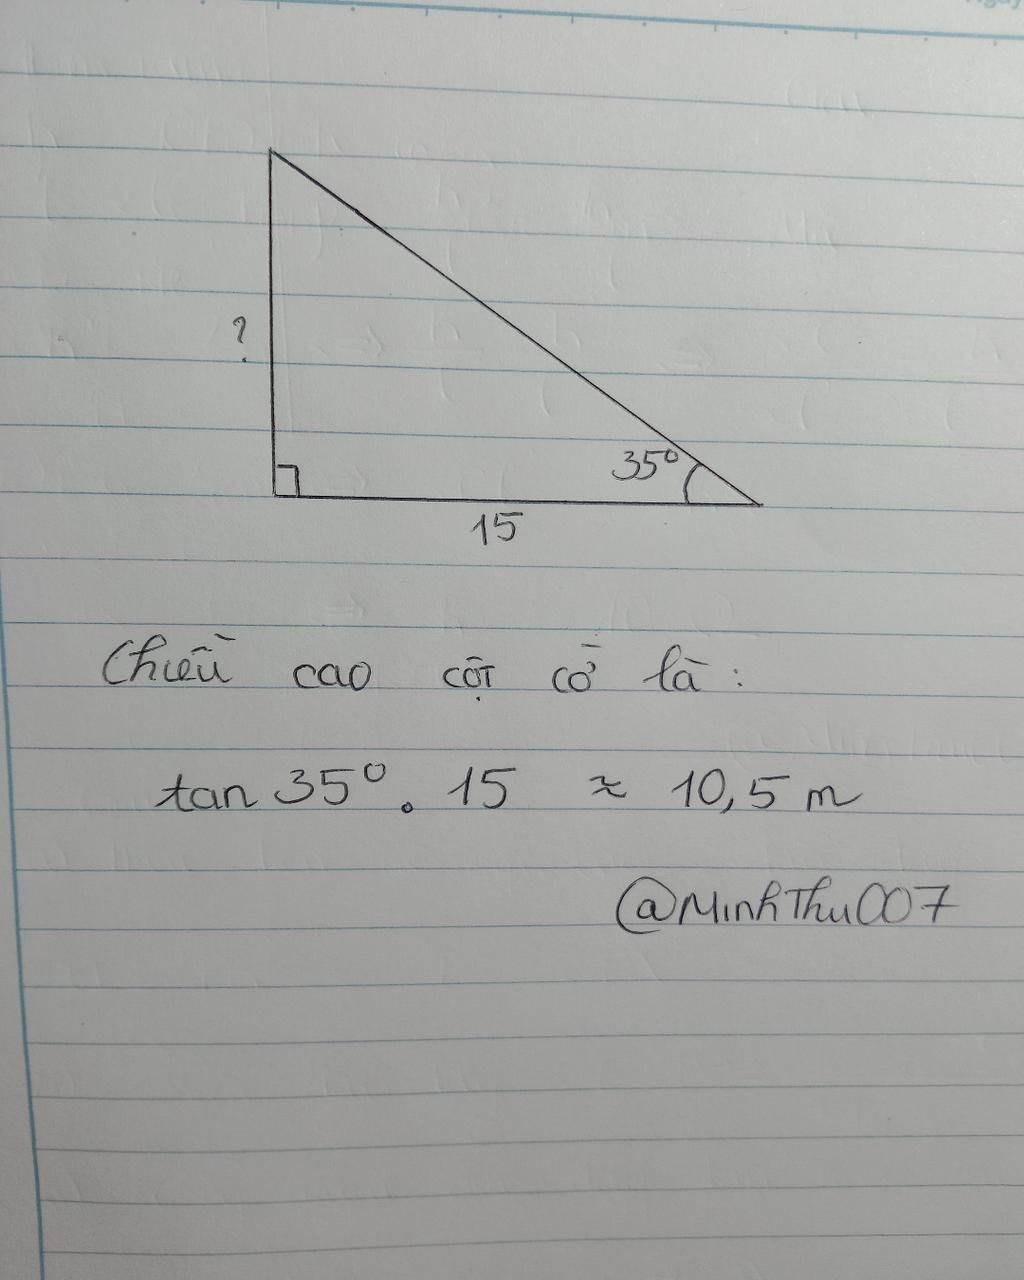 ?
35°
15
Chiều cao cột cờ là :
tan 35° . 15 ≈ 10,5 m
@MinhThu007